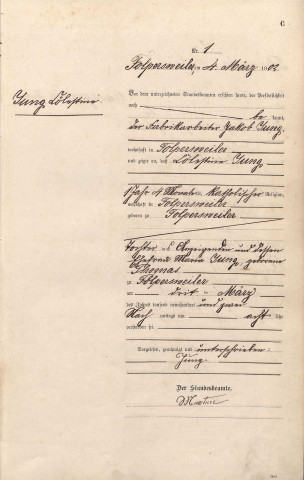 C
Nr. 1
Folpersweiler, am 4. März 1902
Vor dem unterzeichneten Standesbeamten erschien heute, der Persönlichkeit
nach be kannt,
Jung, Cölestine
der Fabrikarbeiter Jakob Jung,
wohnhaft in Folpersweiler
und zeigte an, daß Cölestine Jung,
1 Jahr 4 Monate, katholischer Religion,
wohnhaft in Folpersweiler
geboren zu Folpersweiler
Tochter des Anzeigenden und dessen
Ehefrau Maria Jung, geborene
Thomas
zu Folpersweiler
am drit en März
des Jahres tausend neunhundert und zwei
Nach mittags um acht Uhr
verstorben sei.
Vorgelesen, genehmigt und unterschrieben
Jung.
Der Standesbeamte.